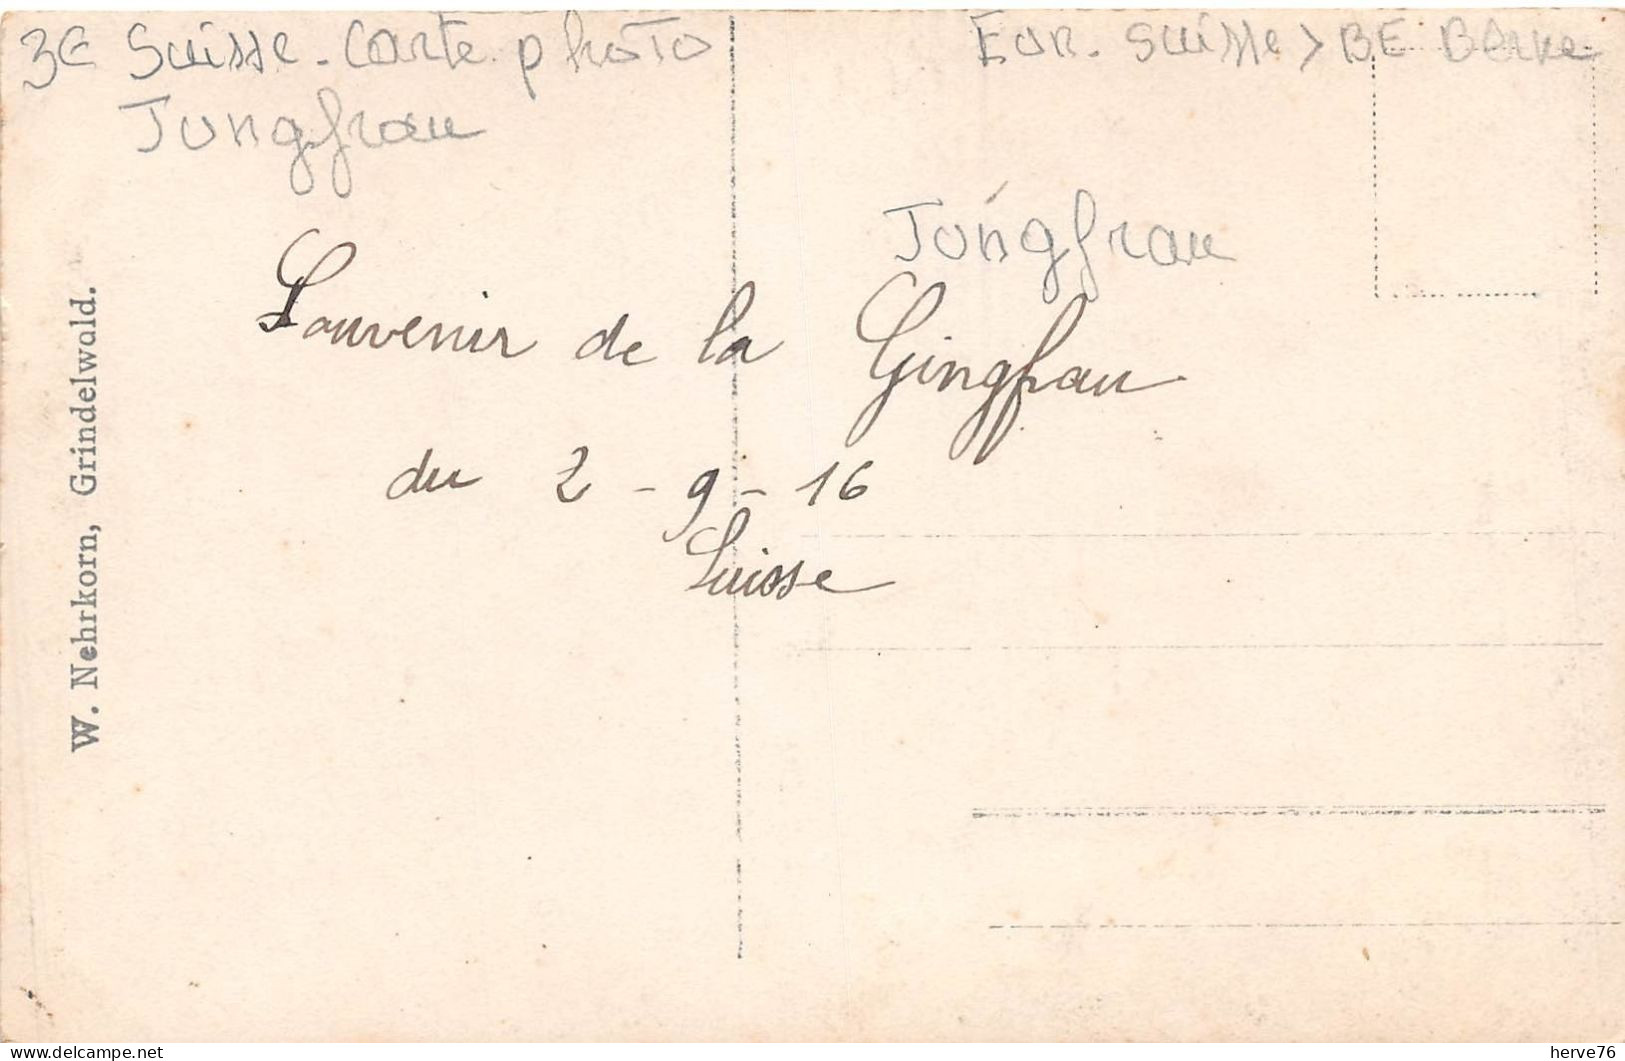 3€ Suisse - Carte photo
Jungfrau
Eur. Suisse > BE Berne
Jungfrau
Souvenir de la Gingfrau
du 2 - 9 - 16
Suisse
W. Nehrkorn, Grindelwald.
herve76